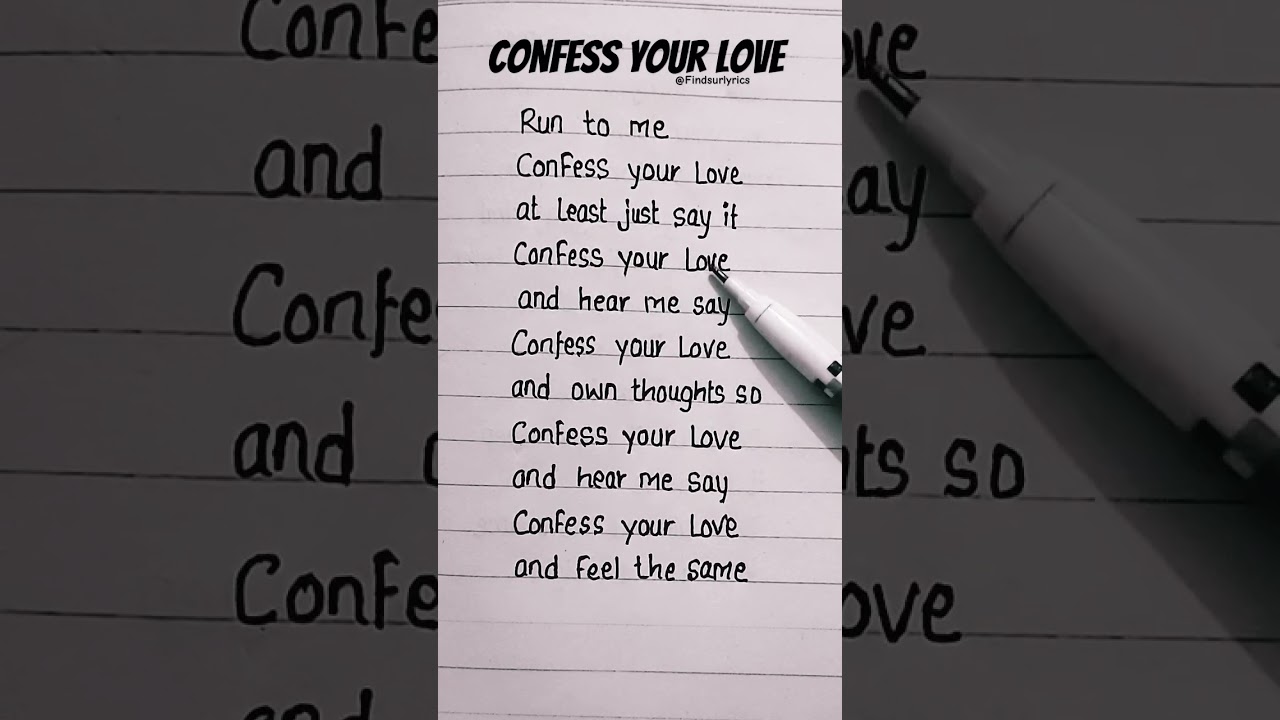 CONFESS YOUR LOVE
@Findsurlyrics
Run to me
Confess your Love
at Least just say it
Confess your Love
and hear me say
Confess your Love
and own thoughts so
Confess your Love
and hear me say
Confess your Love
and feel the same